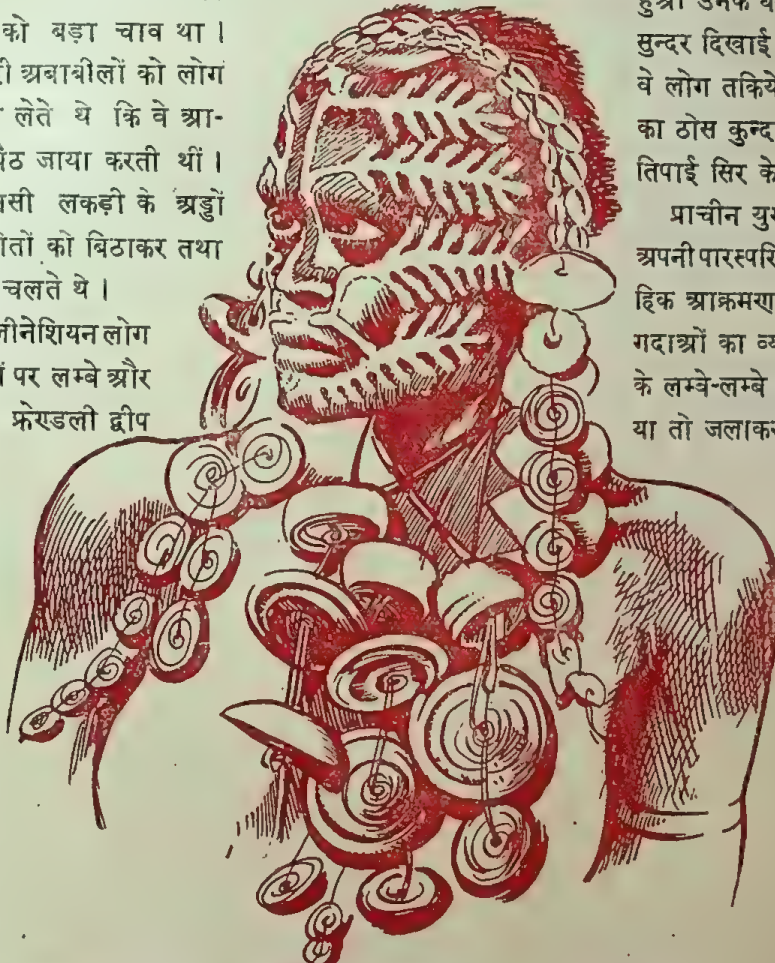 को बड़ा चाव था ।
अबाबीलों को लोग
लेते थे कि वे आ-
बैठ जाया करती थीं ।
लकड़ी के अड्डों
को बिठाकर तथा
चलते थे ।
लीनेशियन लोग
पर लम्बे और
फ्रेण्डली द्वीप
सुन्दर दिखाई
वे लोग तकिये
का ठोस कुन्द
तिपाई सिर के
प्राचीन
अपनी पारस्परि
हिक आक्रमण
गदाओं का
के लम्बे-लम्बे
या तो जलाकर